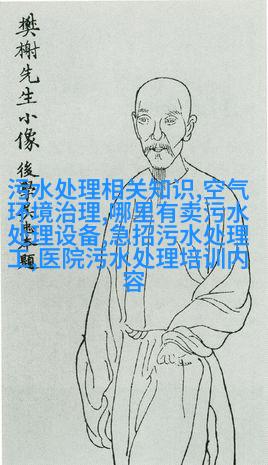 樊榭先生小像
後學
題
污水处理相关知识,空气
环境治理,哪里有卖污水
处理设备,急招污水处理
工,医院污水处理培训内
容